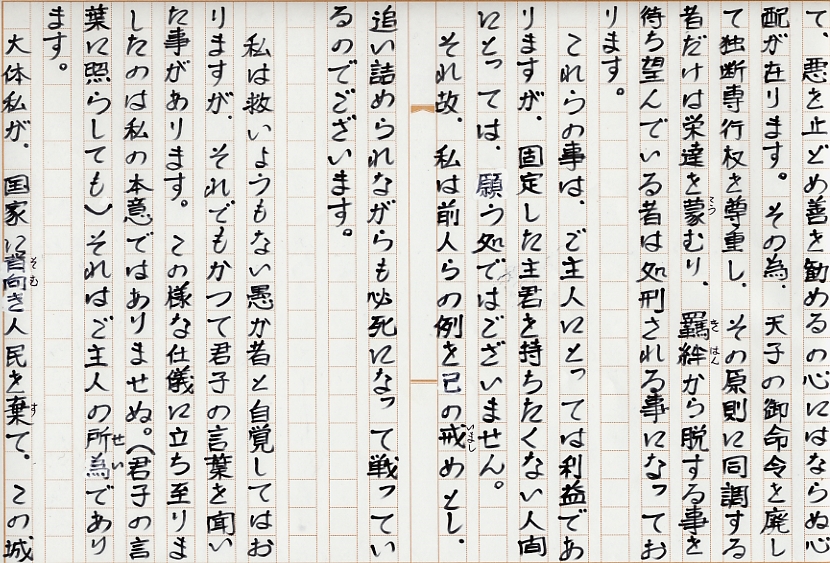 て、悪を止どめ善を勧めるの心にはならぬ心
配が在ります。その為、天子の御命令を廃し
て独断専行権を尊重し、その原則に同調する
者だけは栄達を蒙むり、羈絆から脱する事を
待ち望んでいる者は処刑される事になってお
ります。
これらの事は、ご主人にとっては利益であ
りますが、固定した主君を持ちたくない人間
にとっては、願う処ではございません。
それ故、私は前人らの例を己の戒めとし、
追い詰められながらも必死になって戦ってい
るのでございます。
私は救いようもない愚か者と自覚してはお
りますが、それでもかつて君子の言葉を聞い
た事があります。この様な仕儀に立ち至りま
したのは私の本意ではありませぬ。(君子の言
葉に照らしても)それはご主人の所為であり
ます。
大体私が、国家に背向き人民を棄て、この城